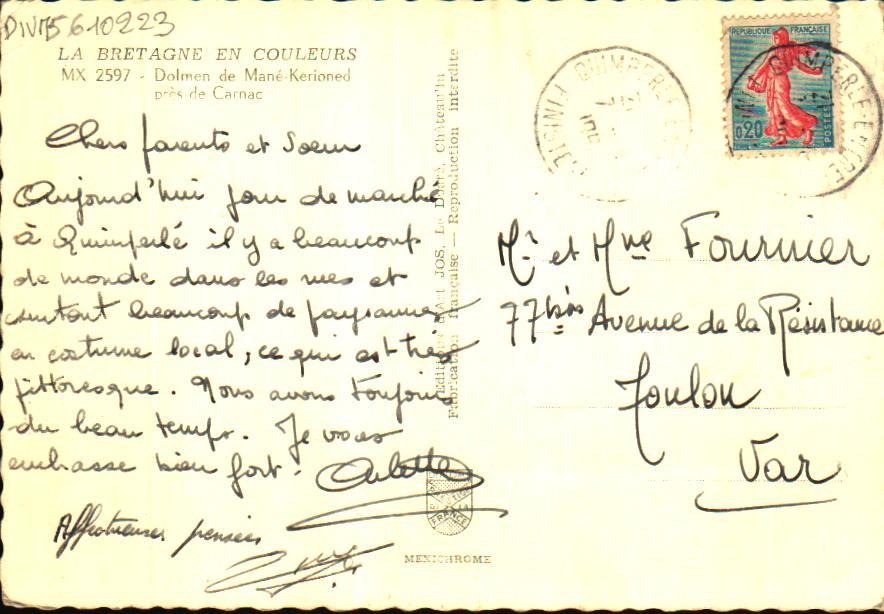 DIV75610223
LA BRETAGNE EN COULEURS
MX 2597 - Dolmen de Mané-Kerioned
près de Carnac
Chers parents et Soeur
Aujourd'hui jour de marché
à Quimperlé il y a beaucoup
de monde dans les rues et
surtout beaucoup de paysannes
en costume local, ce qui est très
pittoresque. Nous avons toujours
du beau temps. Je vous
embrasse bien fort.
Affectueuses pensées
Editions d'Art JOS. Le Doaré, Châteaulin
Fabrication française — Reproduction interdite
MEXICHROME
QUIMPERLE
FINISTERE
REPUBLIQUE FRANÇAISE
0,20
POSTES
Mr et Mme Fournier
77 bis Avenue de la Résistance
Toulon
Var